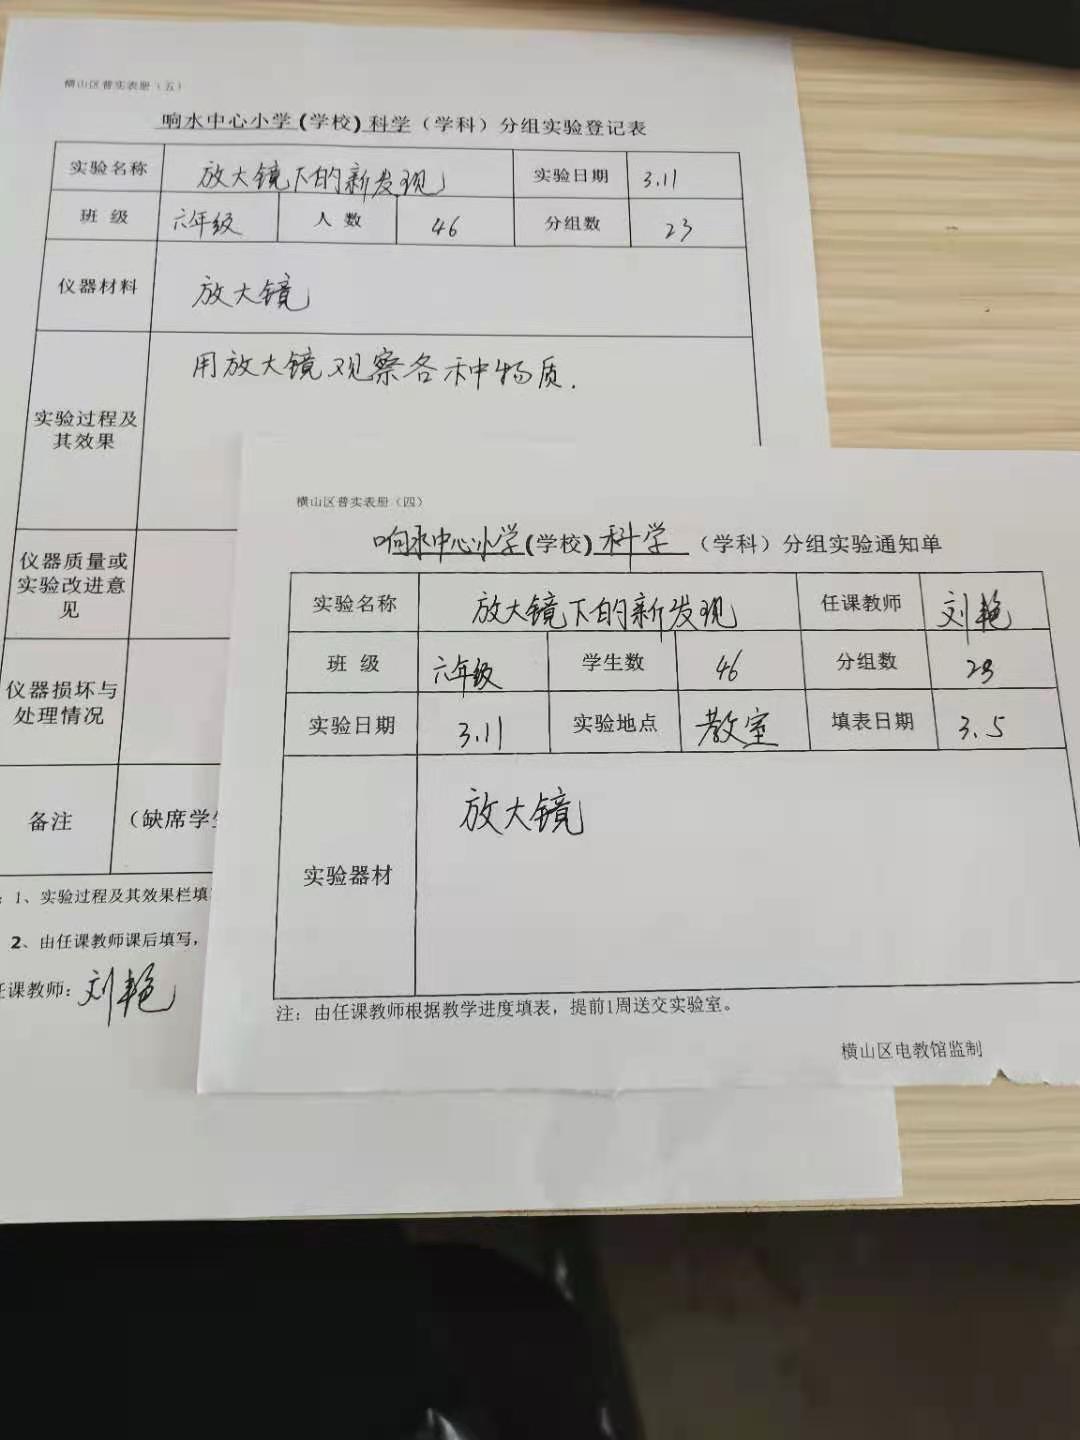 横山区普实表册（五）
响水中心小学(学校)科学（学科）分组实验登记表
实验名称 放大镜下的新发现 实验日期 3.11
班 级 六年级 人 数 46 分组数 23
仪器材料 放大镜
实验过程及其效果 用放大镜观察各种物质.
仪器质量或实验改进意见
仪器损坏与处理情况
备注 （缺席学生
：1、实验过程及其效果栏填
2、由任课教师课后填写，
任课教师：刘艳
横山区普实表册（四）
响水中心小学(学校)科学（学科）分组实验通知单
实验名称 放大镜下的新发现 任课教师 刘艳
班 级 六年级 学生数 46 分组数 23
实验日期 3.11 实验地点 教室 填表日期 3.5
实验器材 放大镜
注：由任课教师根据教学进度填表，提前1周送交实验室。
横山区电教馆监制